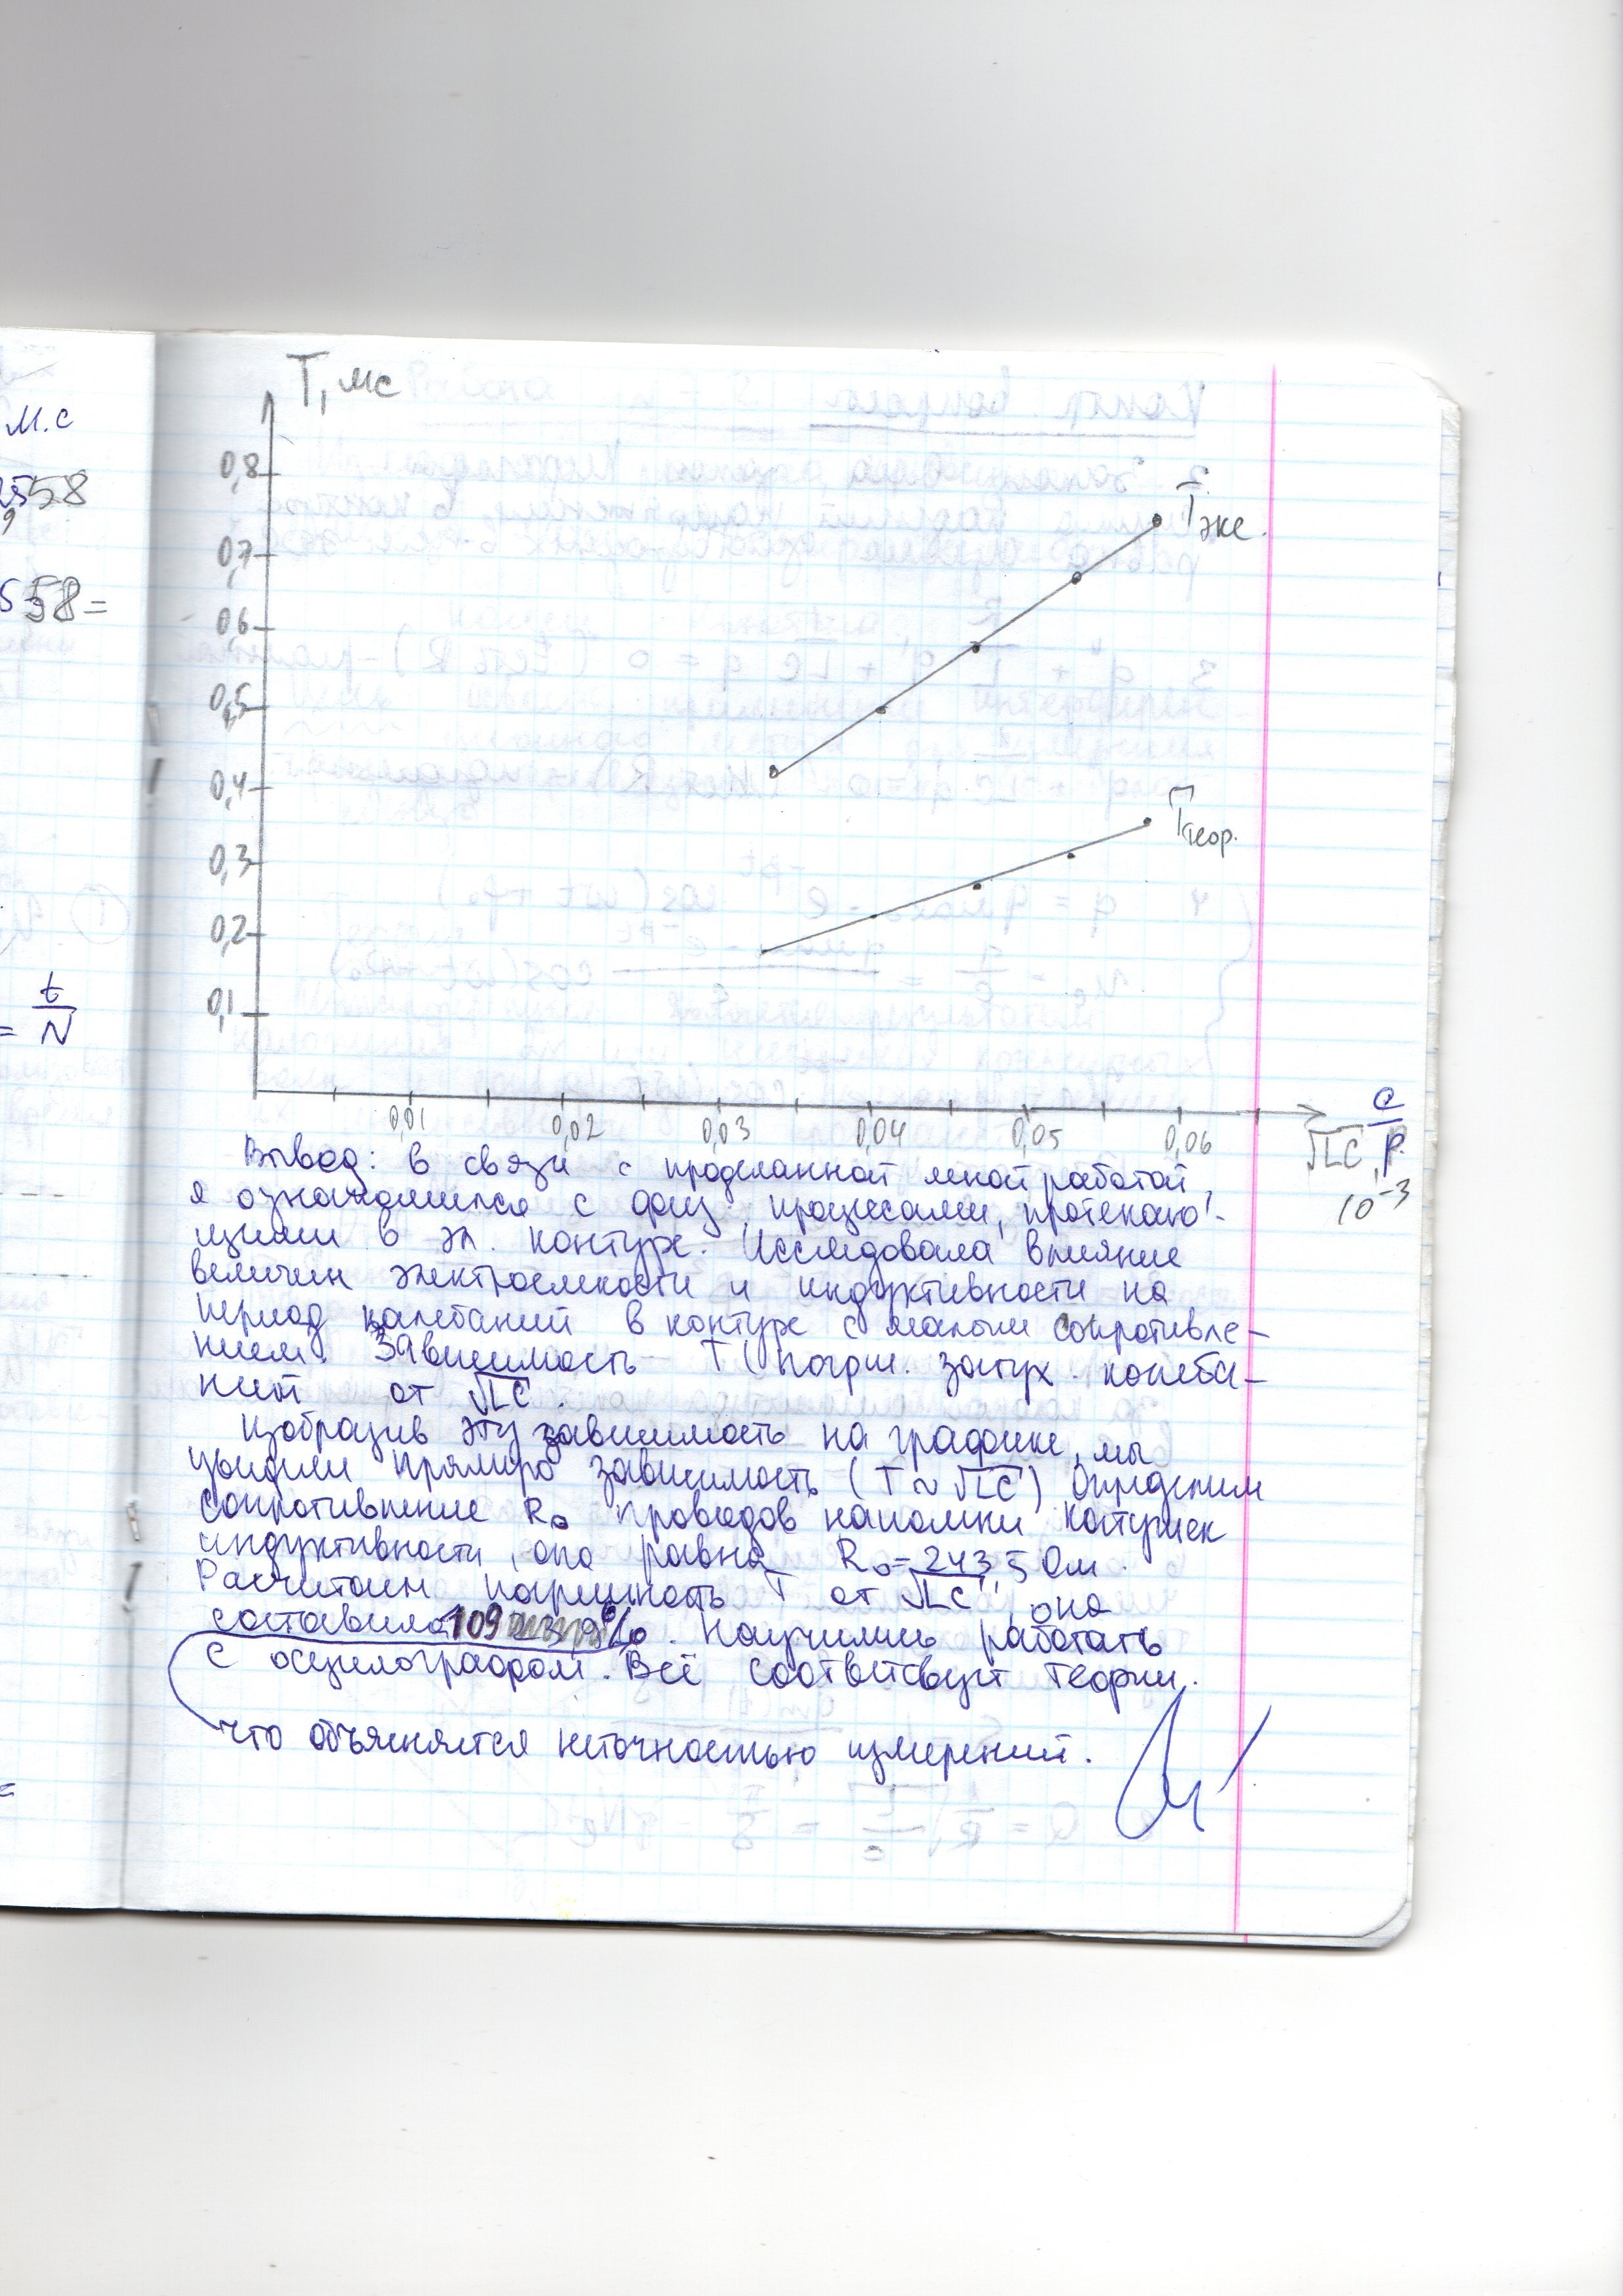 М.с
58
58=
= t/N
=
Т, мс
0,8
0,7
0,6
0,5
0,4
0,3
0,2
0,1
Тэкс.
Ттеор.
0,01 0,02 0,03 0,04 0,05 0,06
√LC,
10⁻³
Вывод: в связи с проделанной мной работой,
я ознакомился с физ. процессами, протекаю-
щими в эл. контуре. Исследовала влияние
величин электроемкости и индуктивности на
период калебаний в контуре с малым сопротивле-
нием. Зависимость Т (погрш. затух. колеба-
ний от √LC.
Изобразив эту зависимость на графике, мы
увидели прямую зависимость (T ~ √LC) Определим
сопротивление R₀ проводов катушек
индуктивности, она равна R₀ = 243,5 Ом.
Расчитаем погрешность Т от √LC, она
составила 109 %. Научились работать
с осцилографом. Всё соответсвует теории.
что объясняется неточностью измерений.